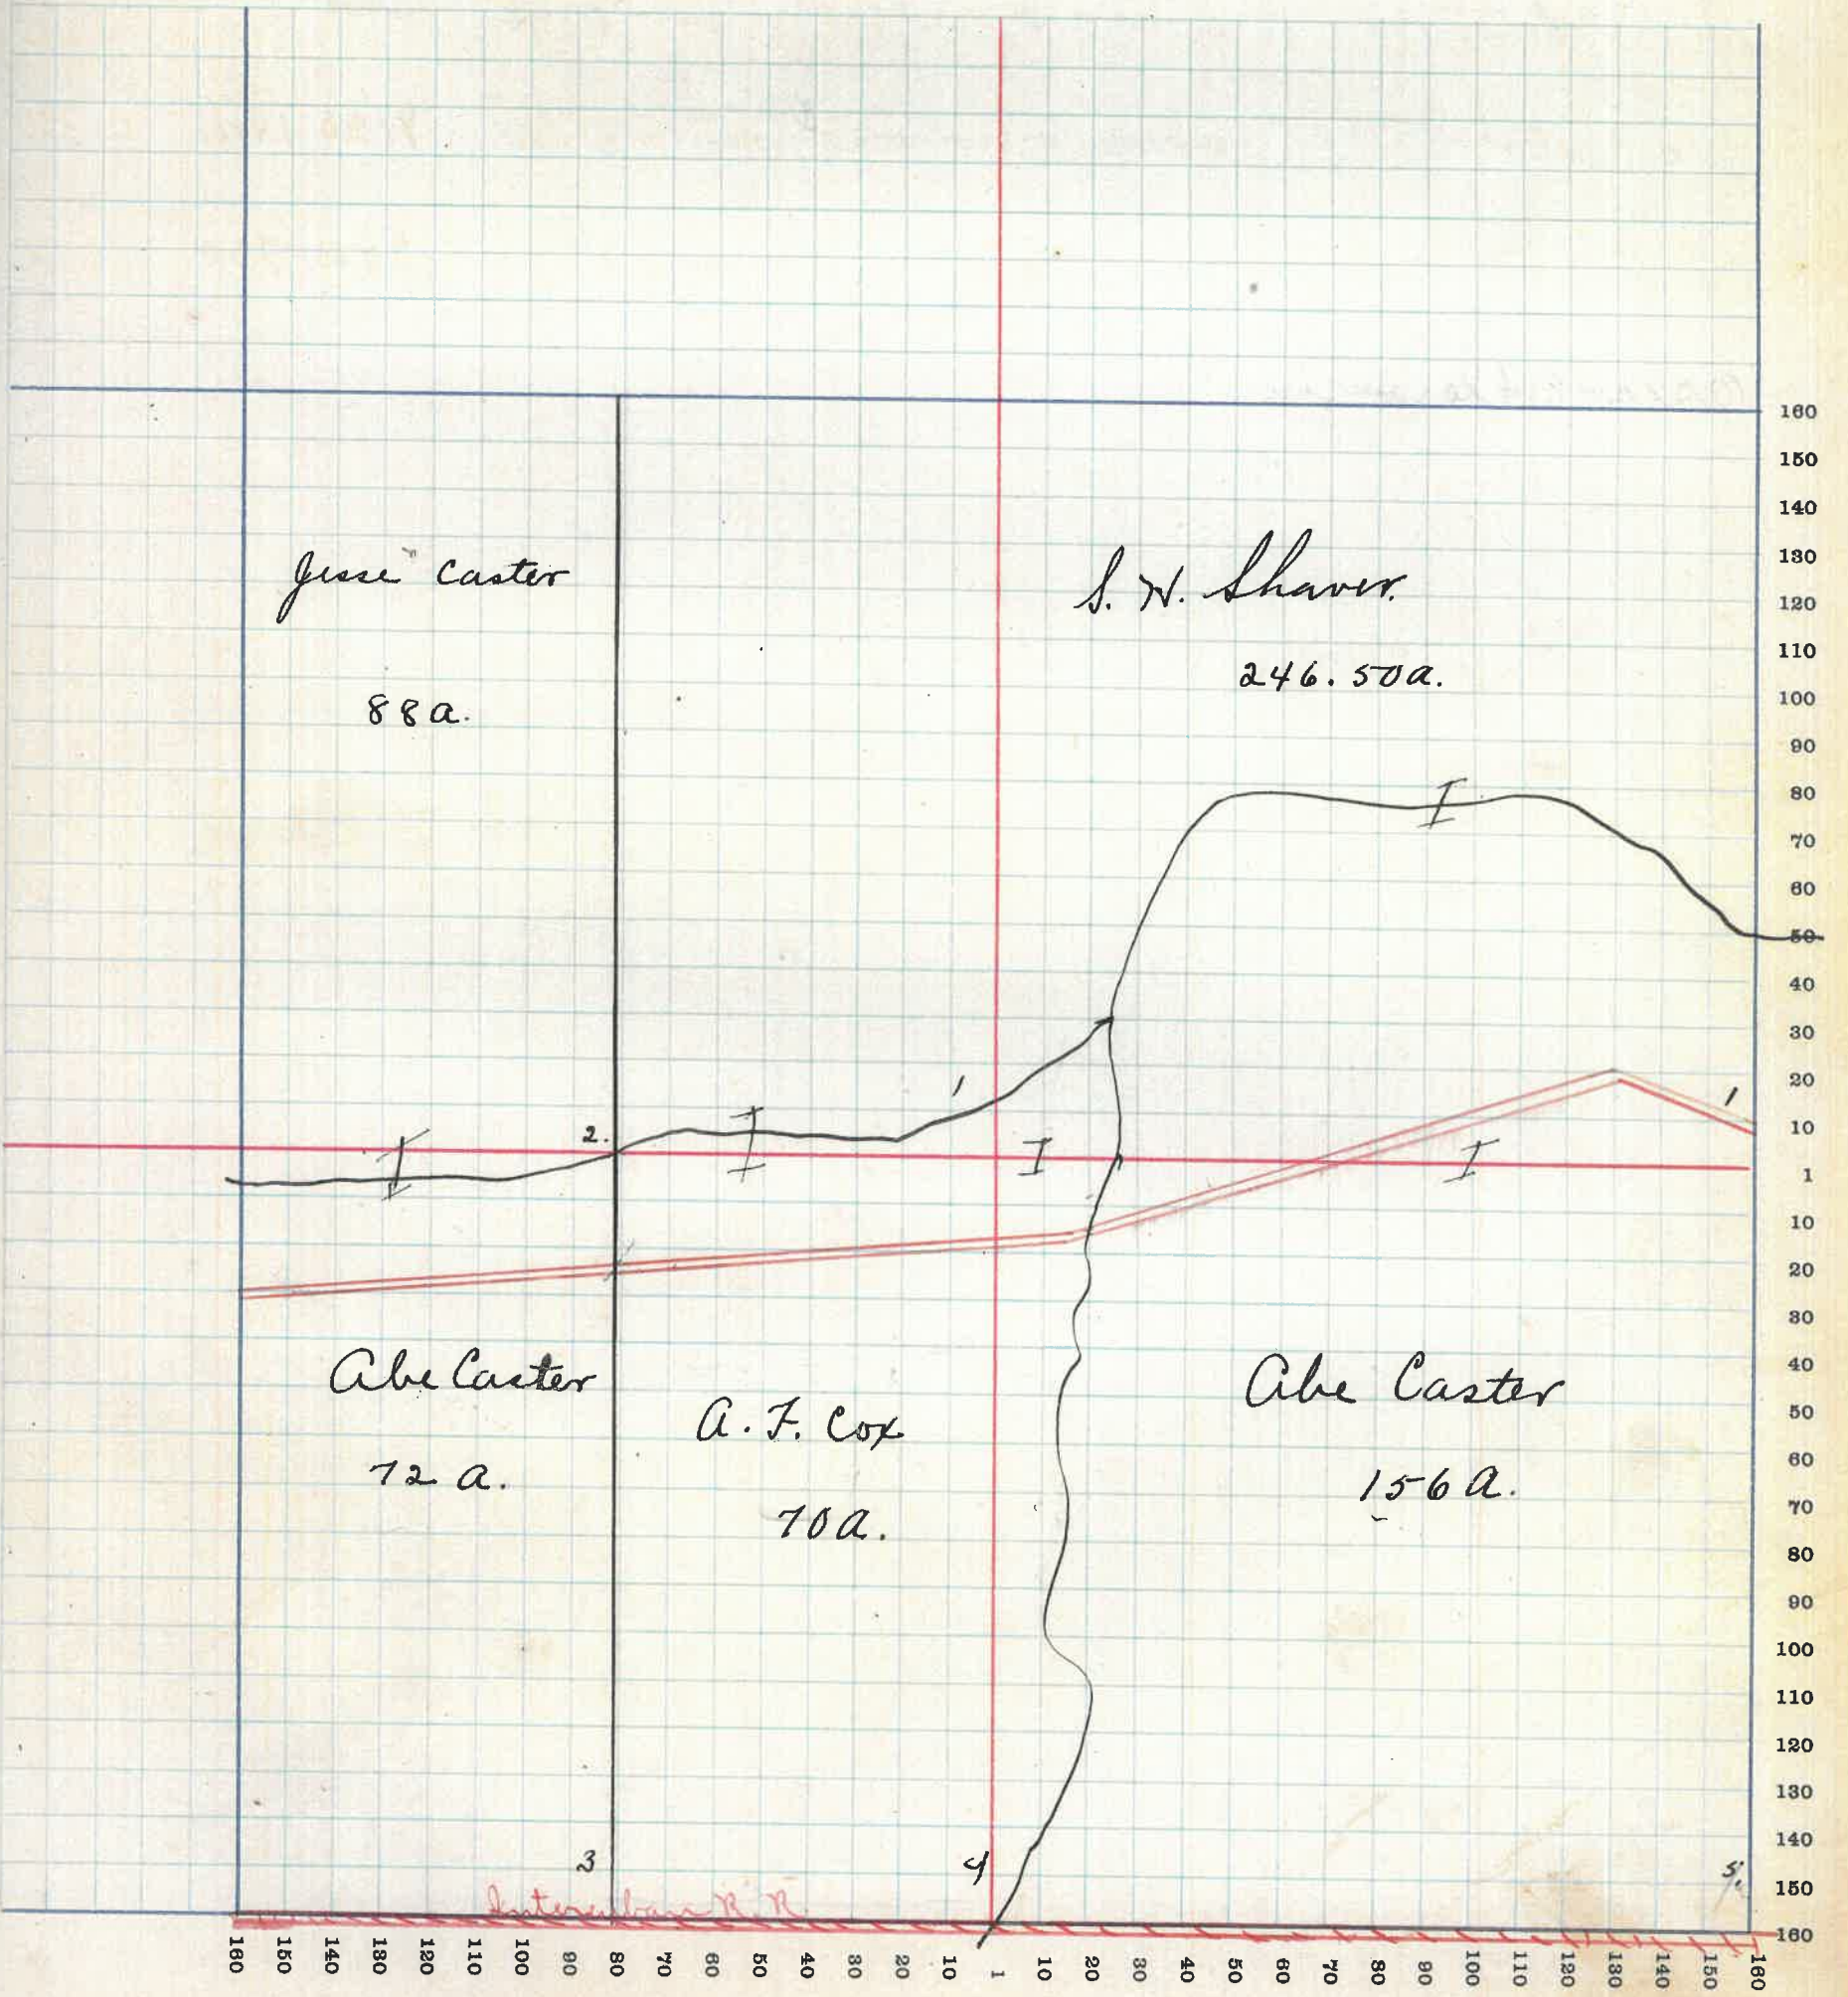 Jesse Caster
88 a.
S. H. Shaver.
246.50 a.
160
150
140
130
120
110
100
90
80
70
60
50
40
30
20
10
1
10
20
30
40
50
60
70
80
90
100
110
120
130
140
150
160
I
1
1
2.
I
I
I
I
Abe Caster
72 a.
A. F. Cox
70 a.
Abe Caster
156 a.
3
4
5.
Interurban R. R.
160 150 140 130 120 110 100 90 80 70 60 50 40 30 20 10 1 10 20 30 40 50 60 70 80 90 100 110 120 130 140 150 160